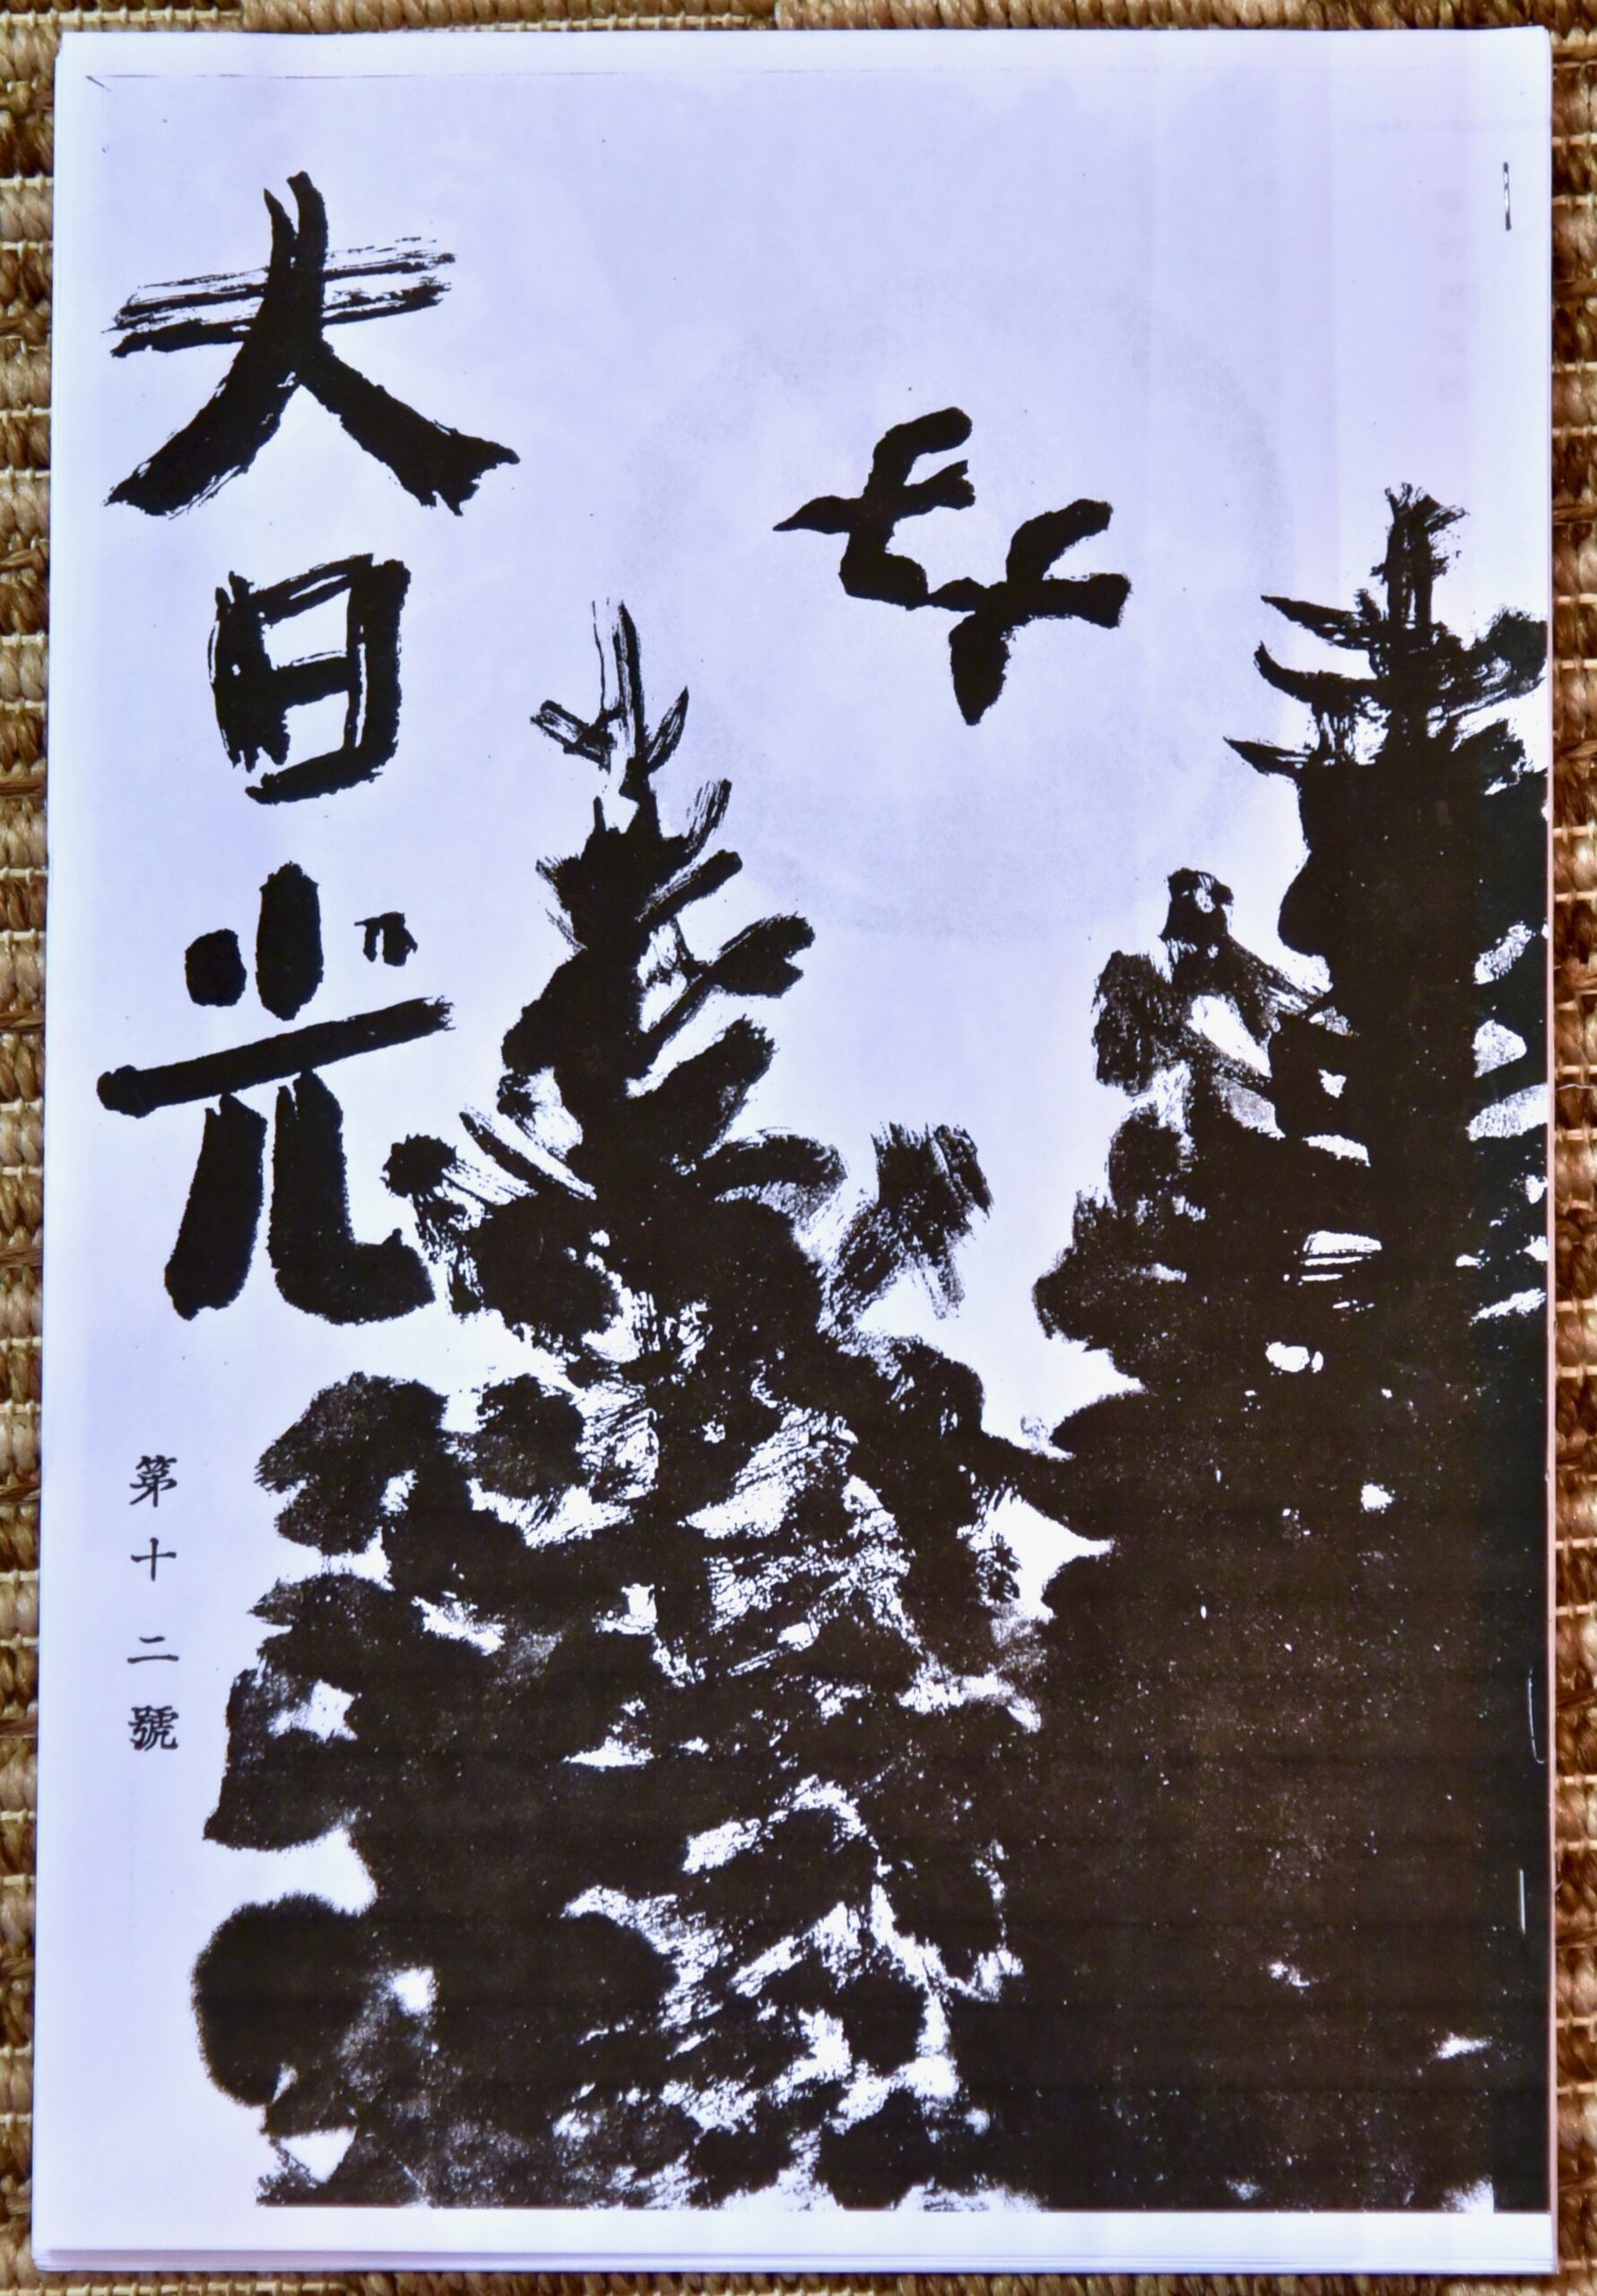 大日光
第十二號